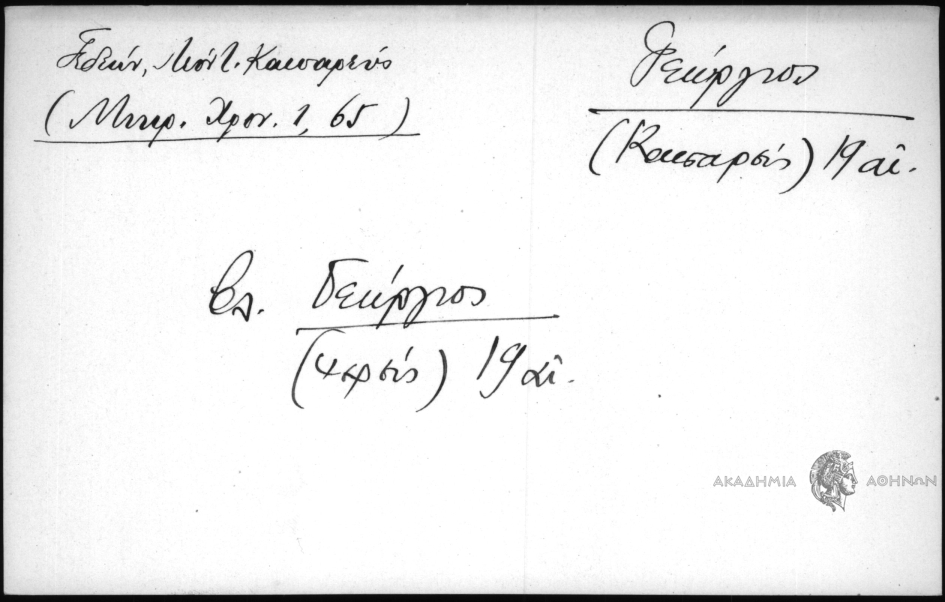 Γεδεών, Λεόντ. Καισαρεύς
(Μικρ. Χρον. 1, 65)
Γεώργιος
(Καισαρεύς) 19 αἰ.
βλ. Γεώργιος
19 αἰ.
ΑΚΑΔΗΜΙΑ ΑΘΗΝΩΝ